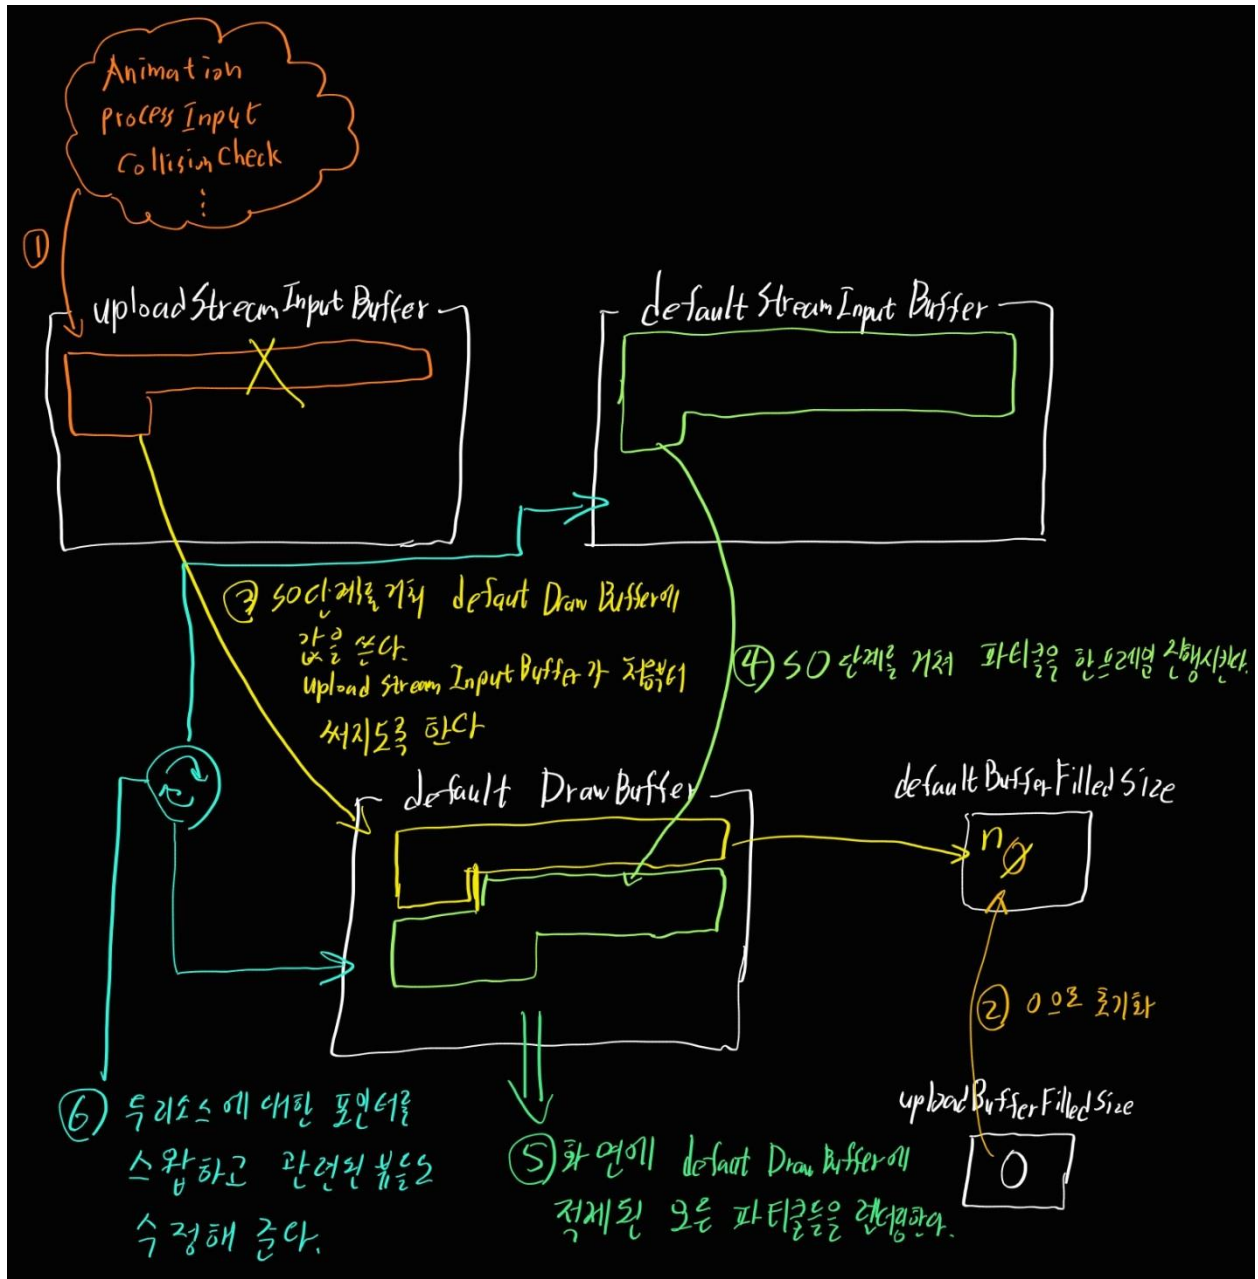 Animation
Process Input
Collision Check
⋮
①
uploadStreamInputBuffer
defaultStreamInputBuffer
③ SO단계를 거쳐 defaut Draw Buffer에
값을 쓴다.
upload Stream InputBuffer가 처음부터
써지도록 한다
④ SO 단계를 거쳐 파티클을 한프레임 진행시킨다.
default DrawBuffer
defaultBufferFilledSize
n 0
② 0으로 초기화
uploadBufferFilledSize
0
⑤ 화면에 defaut Draw Buffer에
적제된 모든 파티클들을 렌더링한다.
⑥ 두리소스에 대한 포인터를
스왑하고 관련된 뷰들도
수정해 준다.